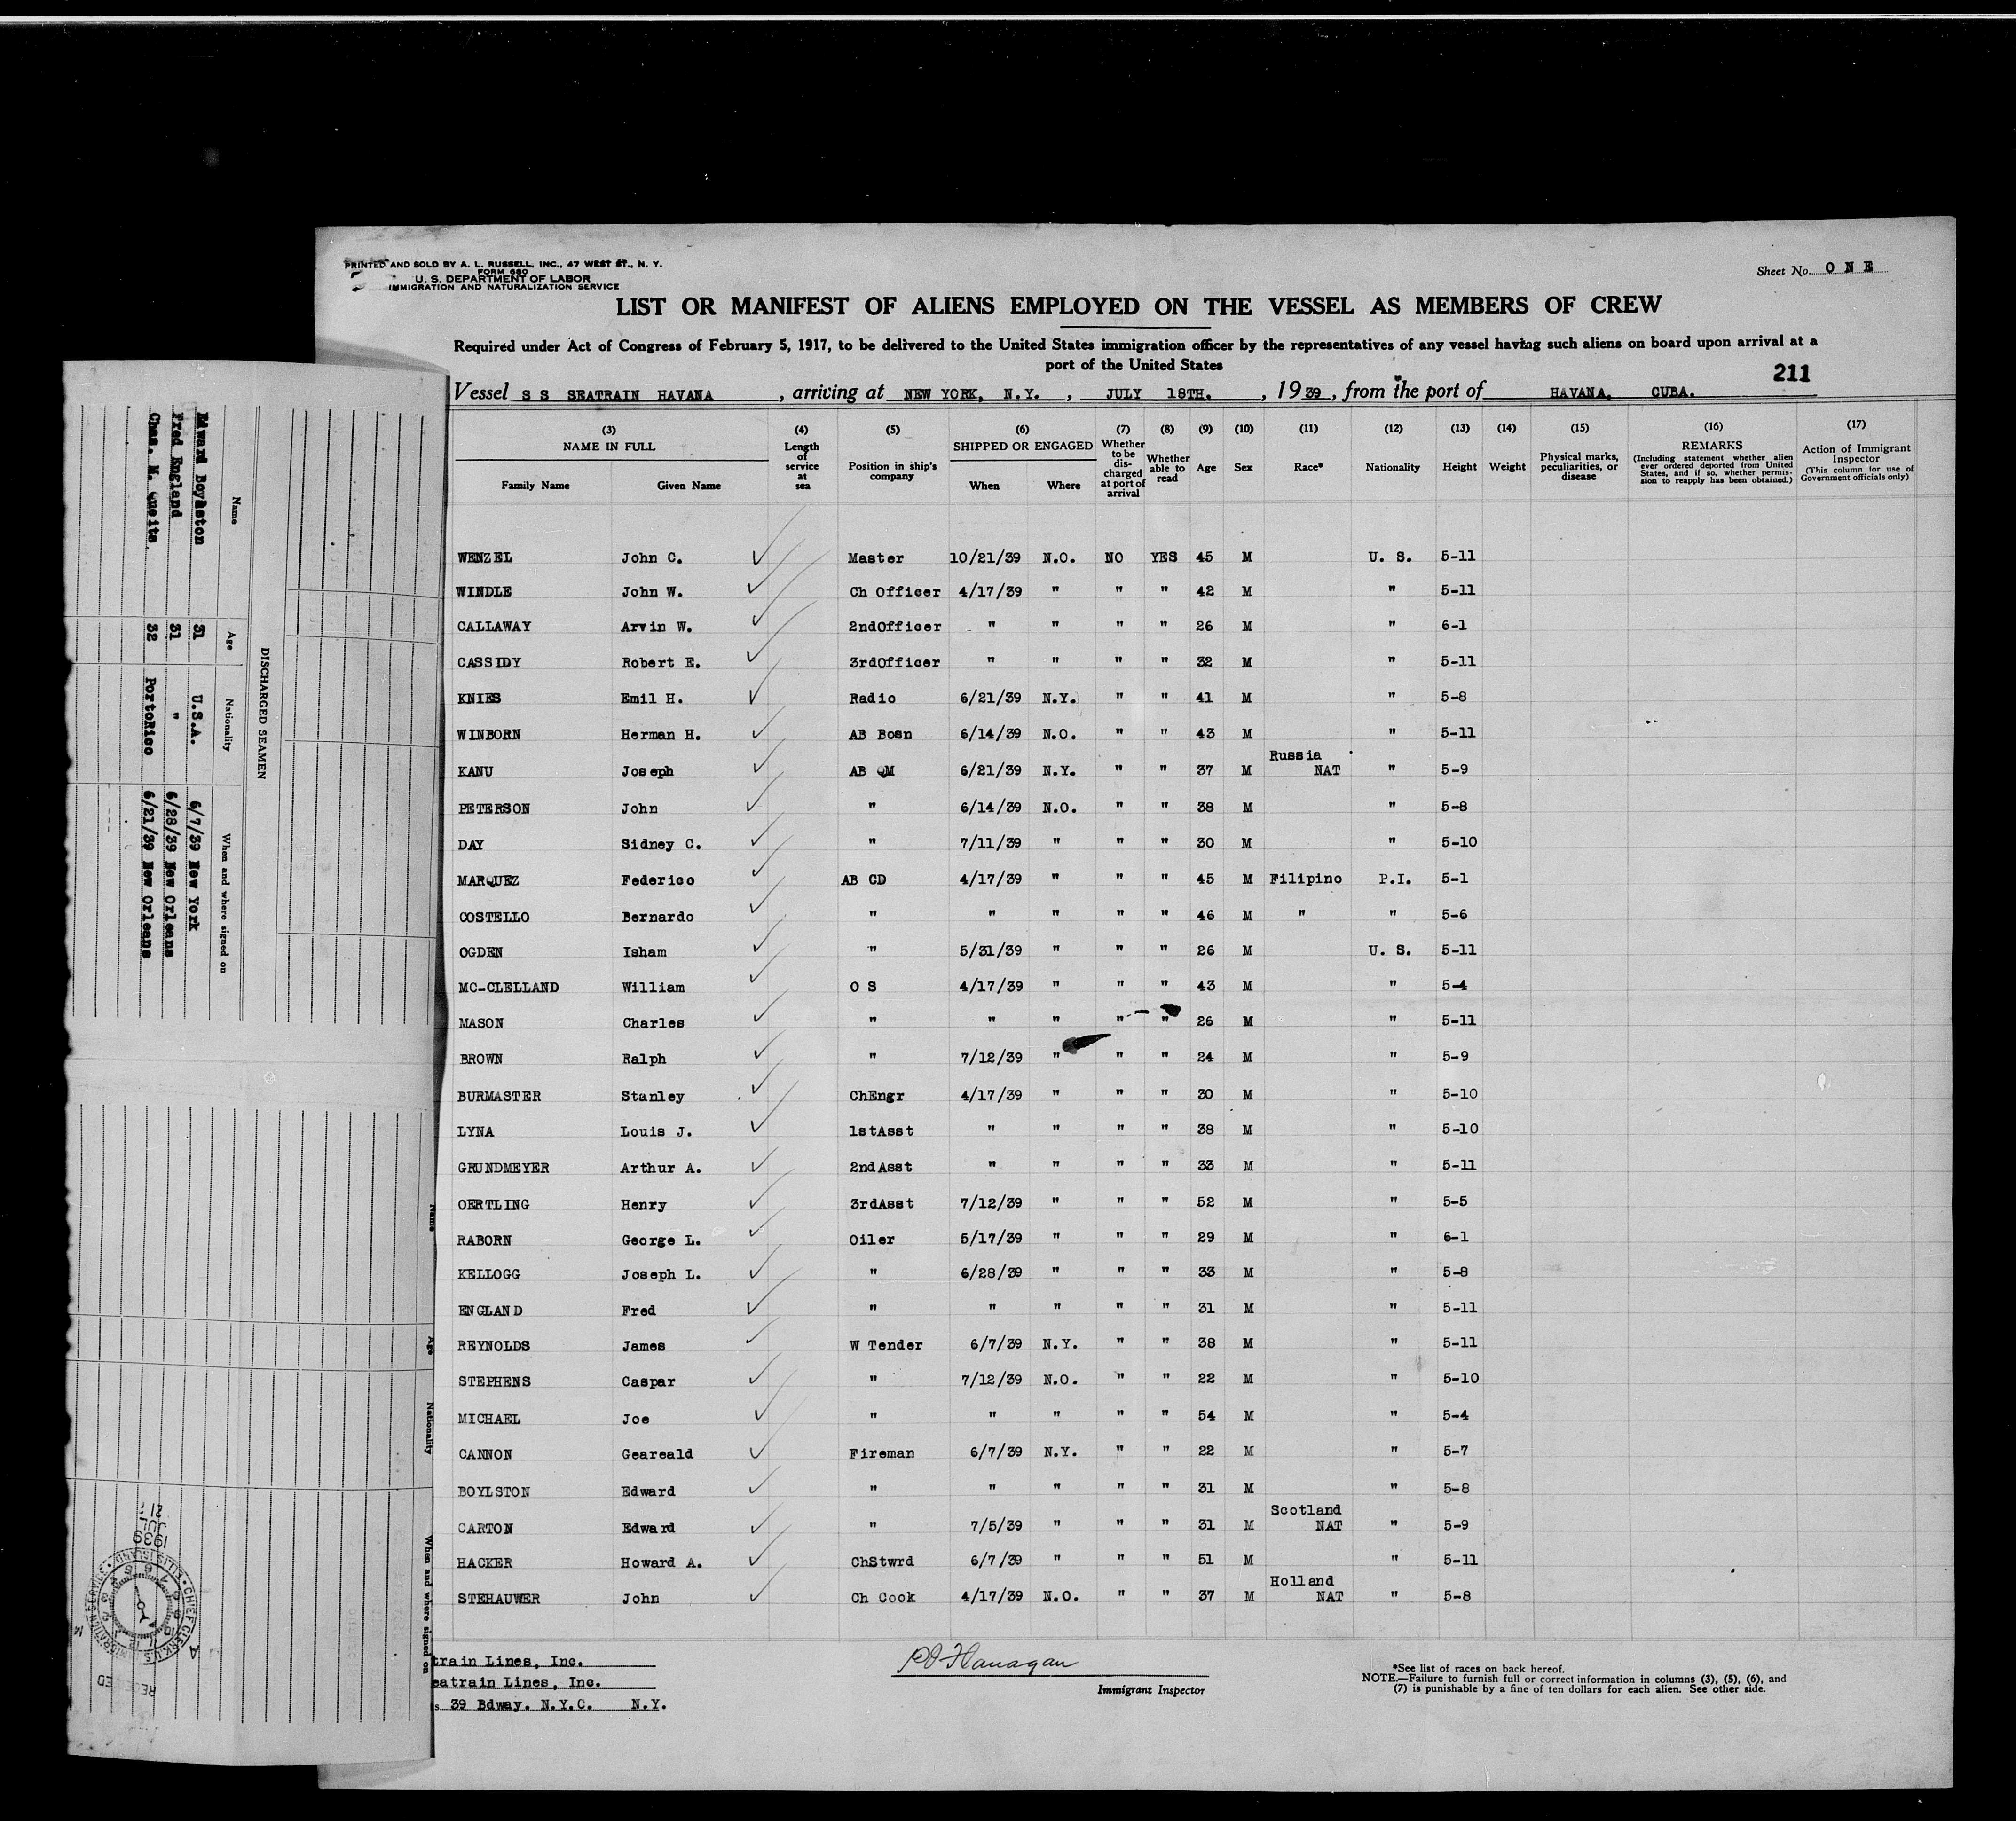 PRINTED AND SOLD BY A. L. RUSSELL, INC., 47 WEST ST., N. Y.
FORM 680
U. S. DEPARTMENT OF LABOR
IMMIGRATION AND NATURALIZATION SERVICE
Sheet No. O N E
LIST OR MANIFEST OF ALIENS EMPLOYED ON THE VESSEL AS MEMBERS OF CREW
Required under Act of Congress of February 5, 1917, to be delivered to the United States immigration officer by the representatives of any vessel having such aliens on board upon arrival at a
port of the United States
211
Vessel S S SEATRAIN HAVANA , arriving at NEW YORK, N.Y. , JULY 18TH. , 1939 , from the port of HAVANA, CUBA.
(3) (4) (5) (6) (7) (8) (9) (10) (11) (12) (13) (14) (15) (16) (17)
NAME IN FULL Family Name Given Name
Length of service at sea
Position in ship's company
SHIPPED OR ENGAGED When Where
Whether to be discharged at port of arrival
Whether able to read
Age Sex Race* Nationality Height Weight
Physical marks, peculiarities, or disease
REMARKS (Including statement whether alien ever ordered deported from United States, and if so, whether permission to reapply has been obtained.)
Action of Immigrant Inspector (This column for use of Government officials only)
WENZEL John C. Master 10/21/39 N.O. NO YES 45 M U. S. 5-11
WINDLE John W. Ch Officer 4/17/39 " " " 42 M " 5-11
CALLAWAY Arvin W. 2ndOfficer " " " " 26 M " 6-1
CASSIDY Robert E. 3rdOfficer " " " " 32 M " 5-11
KNIES Emil H. Radio 6/21/39 N.Y. " " 41 M " 5-8
WINBORN Herman H. AB Bosn 6/14/39 N.O. " " 43 M " 5-11
KANU Joseph AB QM 6/21/39 N.Y. " " 37 M Russia NAT " 5-9
PETERSON John " 6/14/39 N.O. " " 38 M " 5-8
DAY Sidney C. " 7/11/39 " " " 30 M " 5-10
MARQUEZ Federico AB CD 4/17/39 " " " 45 M Filipino P.I. 5-1
COSTELLO Bernardo " " " " " 46 M " " 5-6
OGDEN Isham " 5/31/39 " " " 26 M U. S. 5-11
MC-CLELLAND William O S 4/17/39 " " " 43 M " 5-4
MASON Charles " " " " " 26 M " 5-11
BROWN Ralph " 7/12/39 " " " 24 M " 5-9
BURMASTER Stanley ChEngr 4/17/39 " " " 30 M " 5-10
LYNA Louis J. 1stAsst " " " " 38 M " 5-10
GRUNDMEYER Arthur A. 2ndAsst " " " " 33 M " 5-11
OERTLING Henry 3rdAsst 7/12/39 " " " 52 M " 5-5
RABORN George L. Oiler 5/17/39 " " " 29 M " 6-1
KELLOGG Joseph L. " 6/28/39 " " " 33 M " 5-8
ENGLAND Fred " " " " " 31 M " 5-11
REYNOLDS James W Tender 6/7/39 N.Y. " " 38 M " 5-11
STEPHENS Caspar " 7/12/39 N.O. " " 22 M " 5-10
MICHAEL Joe " " " " " 54 M " 5-4
CANNON Geareald Fireman 6/7/39 N.Y. " " 22 M " 5-7
BOYLSTON Edward " " " " " 31 M " 5-8
CARTON Edward " 7/5/39 " " " 31 M Scotland NAT " 5-9
HACKER Howard A. ChStwrd 6/7/39 " " " 51 M " 5-11
STEHAUWER John Ch Cook 4/17/39 N.O. " " 37 M Holland NAT " 5-8
train Lines, Inc.
eatrain Lines, Inc.
s 39 Bdway. N.Y.C. N.Y.
Flanagan
Immigrant Inspector
*See list of races on back hereof.
NOTE.—Failure to furnish full or correct information in columns (3), (5), (6), and
(7) is punishable by a fine of ten dollars for each alien. See other side.
DISCHARGED SEAMEN
Name Age Nationality When and where signed on
Edward Boylston 31 U.S.A. 6/7/39 New York
Fred England 31 " 6/28/39 New Orleans
Chas. M. 32 PortoRico 6/21/39 New Orleans
Name Age Nationality When and where signed on
RECEIVED
CHIEF CLERK U.S. IMMIGRATION SERVICE ELLIS ISLAND
1939
JUL
21